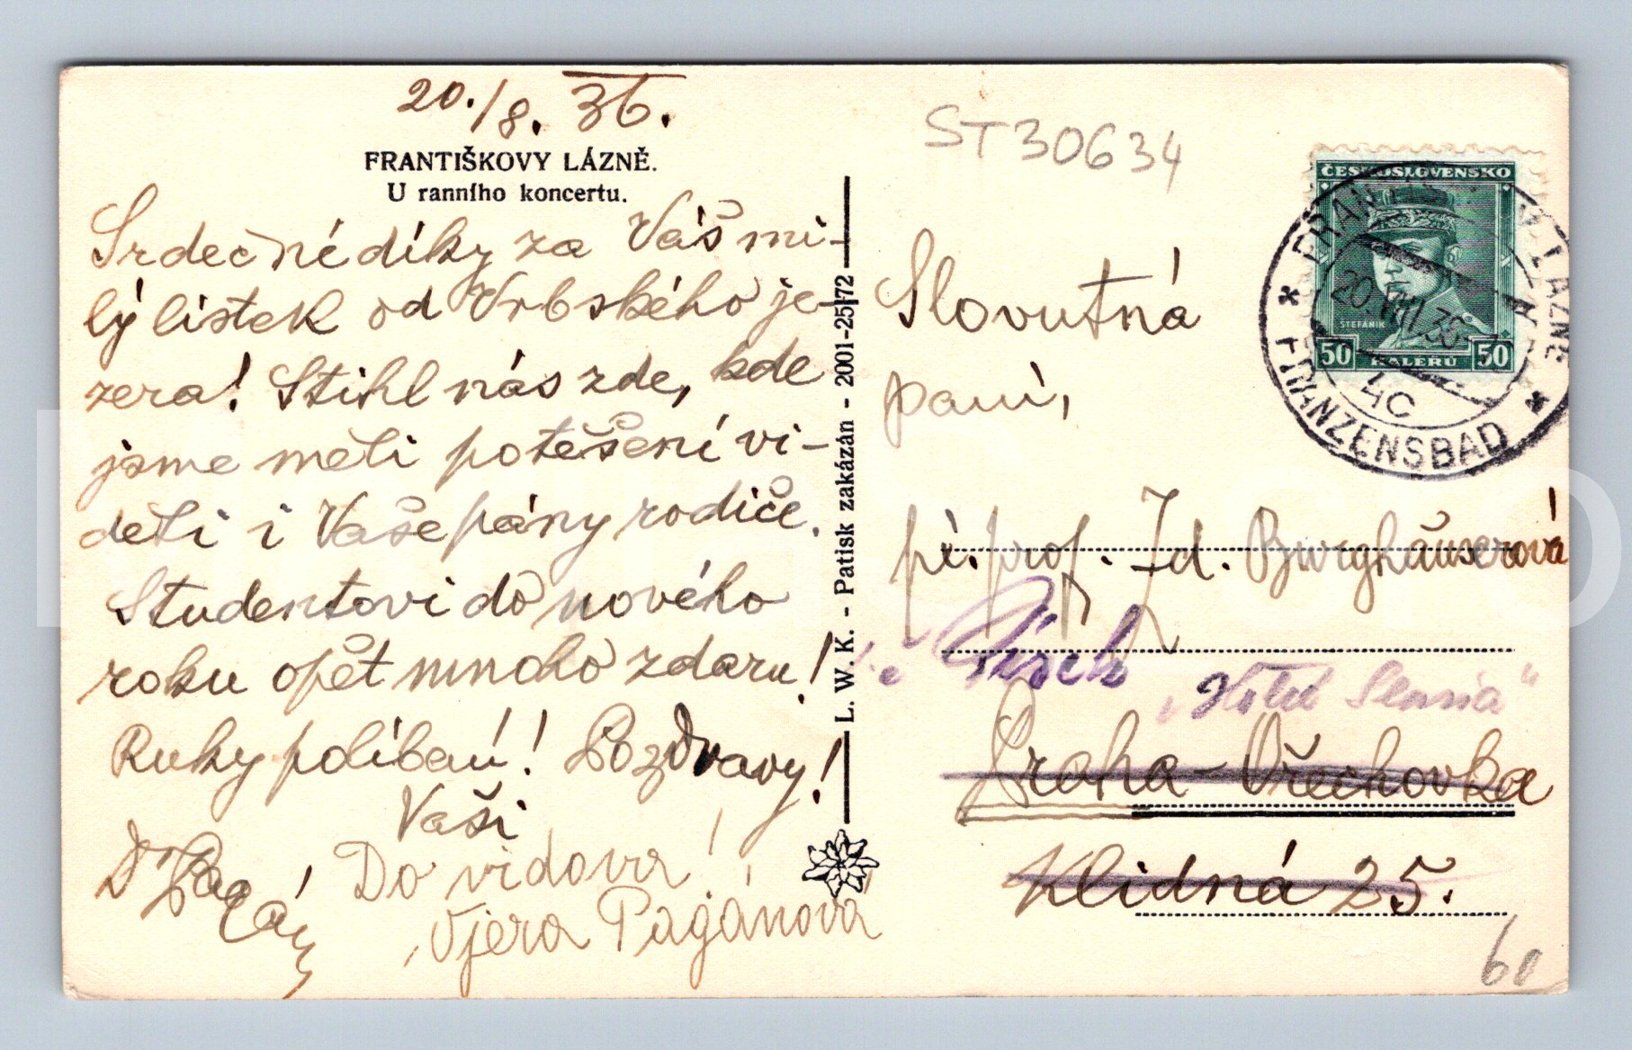 20./8. 36.
FRANTIŠKOVY LÁZNĚ.
U ranního koncertu.
Srdečné díky za Váš mi-
lý lístek od Vrbského je-
zera! Stihl nás zde, kde
jsme měli potěšení vi-
děti i Vaše pány rodiče.
Studentovi do nového
roku opět mnoho zdaru!
Ruky políbení! Pozdravy!
Vaši
Do vidova!
Vjera Pagánová
L. W. K. - Patisk zakázán - 2001-25/72
ST30634
ČESKOSLOVENSKO
ŠTEFÁNIK
50 HALÉŘŮ 50
20.VIII.36
4c
FRANZENSBAD
Slovutná
paní,
pí. prof. Zd. Burghäuserová
Písek
Praha-Ořechovka
Klidná 25.
60